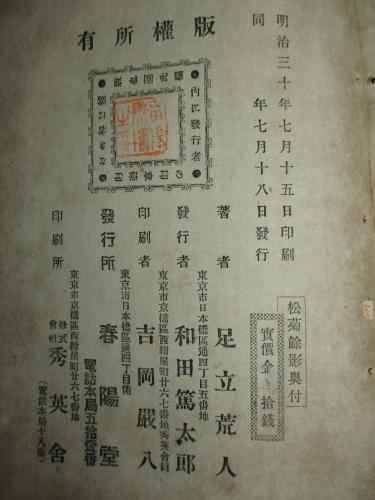 明治三十年七月十五日印刷
同　年七月十八日發行
松菊餘影奥付
實價金　拾錢
版權所有
內に發行者
著者　足立荒人
東京市日本橋區通四丁目五番地
發行者　和田篤太郎
東京市京橋區西紺屋町廿六七番地秀英舍
印刷者　吉岡嚴八
東京市日本橋區通四丁目角
發行所　春陽堂
電話本局五拾壹番
東京市京橋區西紺屋町廿六七番地
印刷所　株式會社　秀英舍
（電話本局十八番）